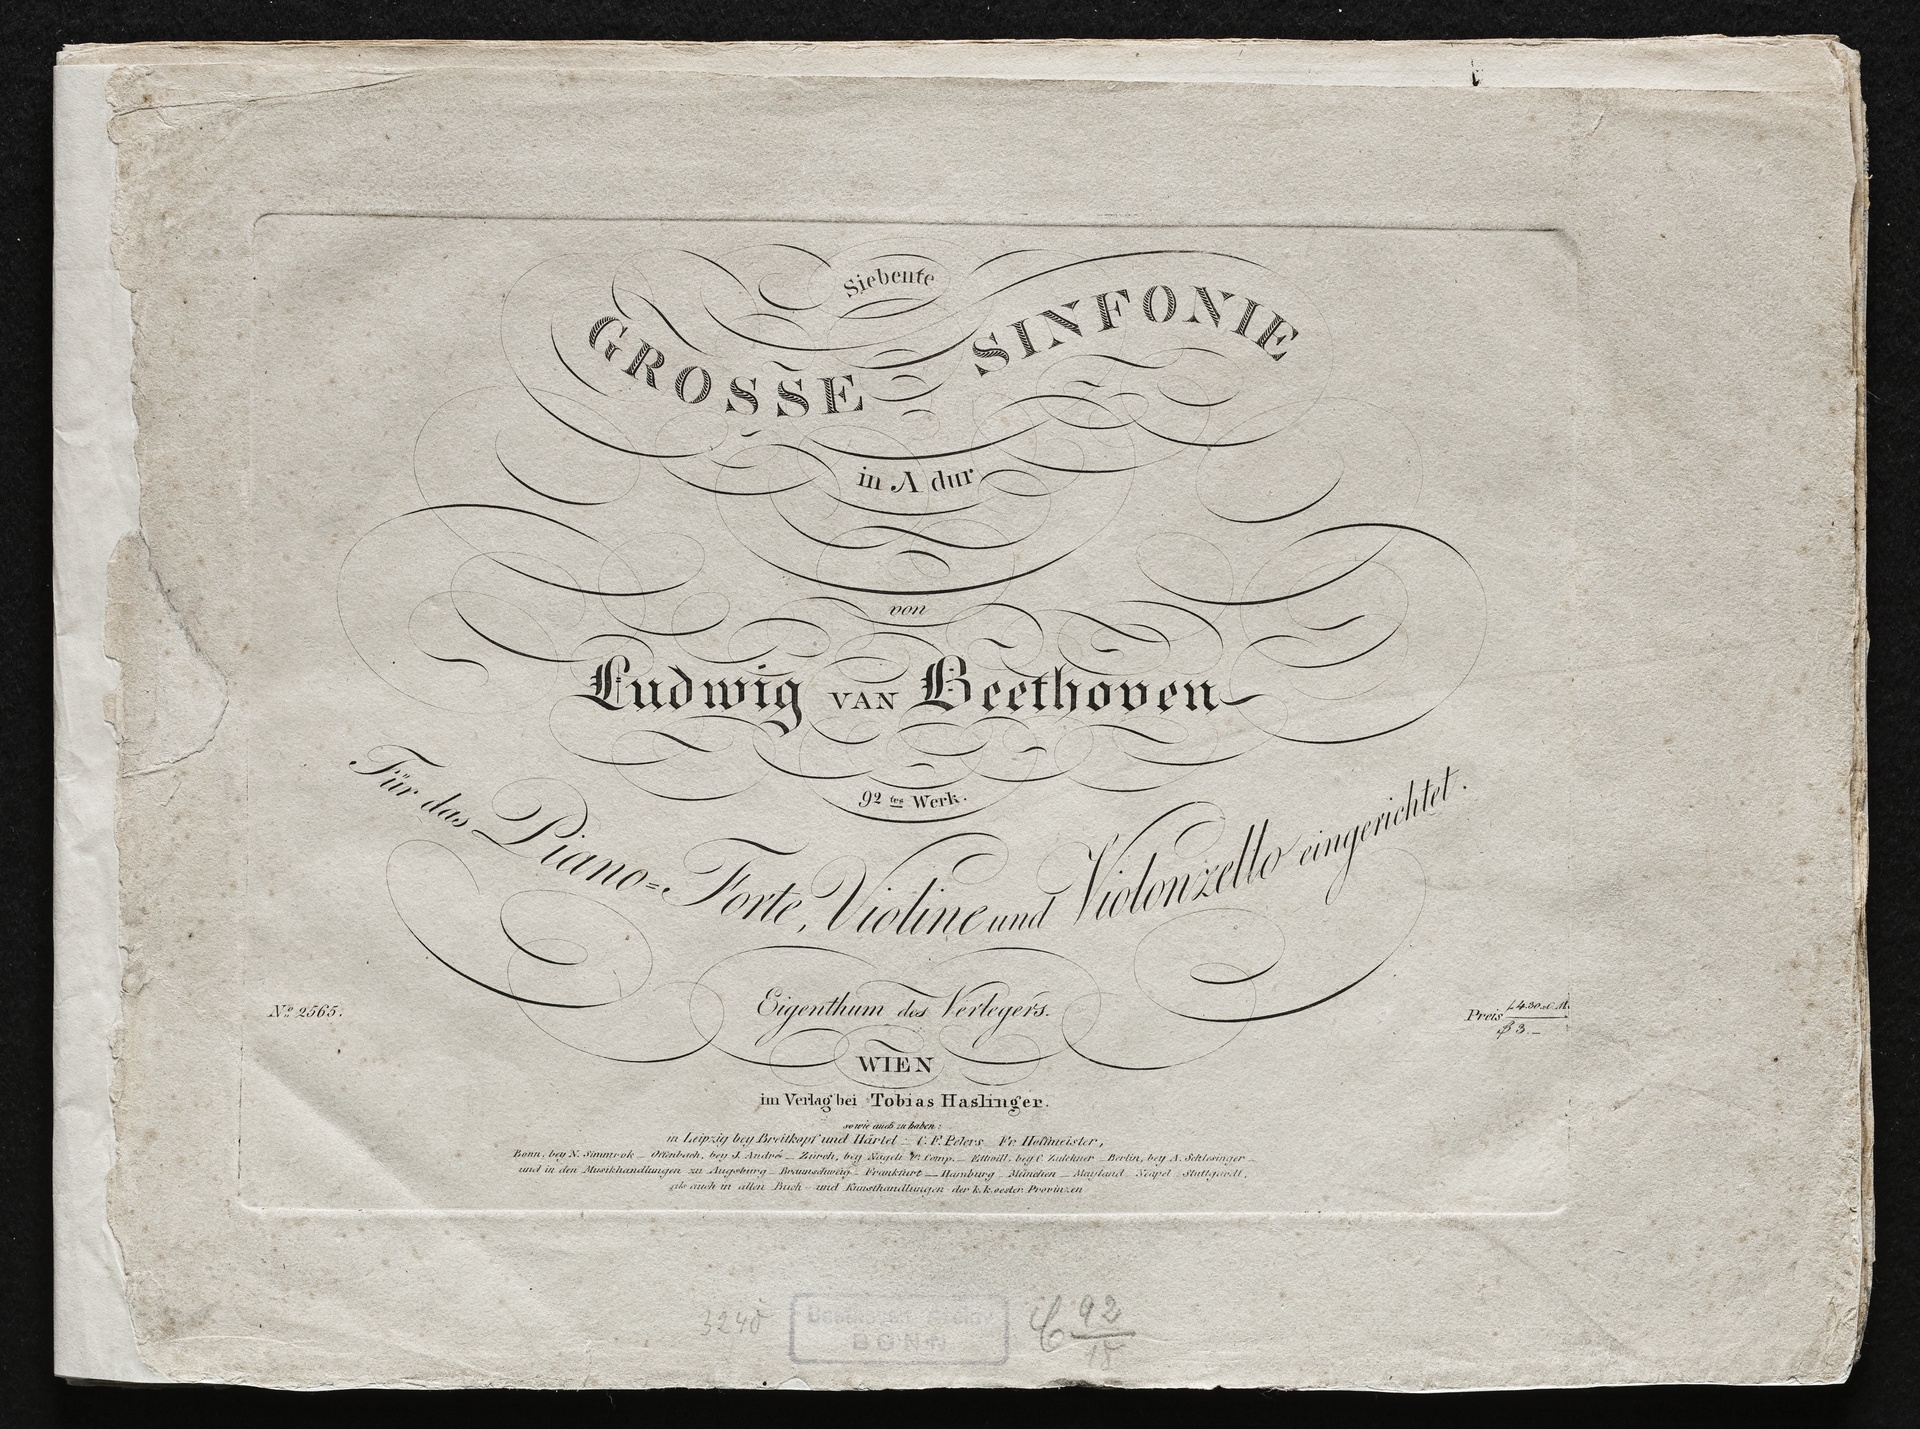 Siebente
GROSSE SINFONIE
in A dur
von
Ludwig VAN Beethoven
92tes Werk.
Für das Piano=Forte, Violine und Violonzello eingerichtet.
Eigenthum des Verlegers.
No 2565.
Preis f 4.30 x C.M.
3.—
WIEN
im Verlag bei Tobias Haslinger.
sowie auch zu haben:
in Leipzig bey Breitkopf und Härtel – C. F. Peters – Fr. Hofmeister,
Bonn, bey N. Simmrok – Offenbach, bey J. André – Zürch, bey Nägeli & Comp. – Eltwill, bey C. Zulehner – Berlin, bey A. Schlesinger –
und in den Musikhandlungen zu Augsburg – Braunschweig – Frankfurt – Hamburg – München – Mayland – Neapel – Stuttgardt,
als auch in allen Buch- und Kunsthandlungen der k.k. oester. Provinzen
BONN
C 92